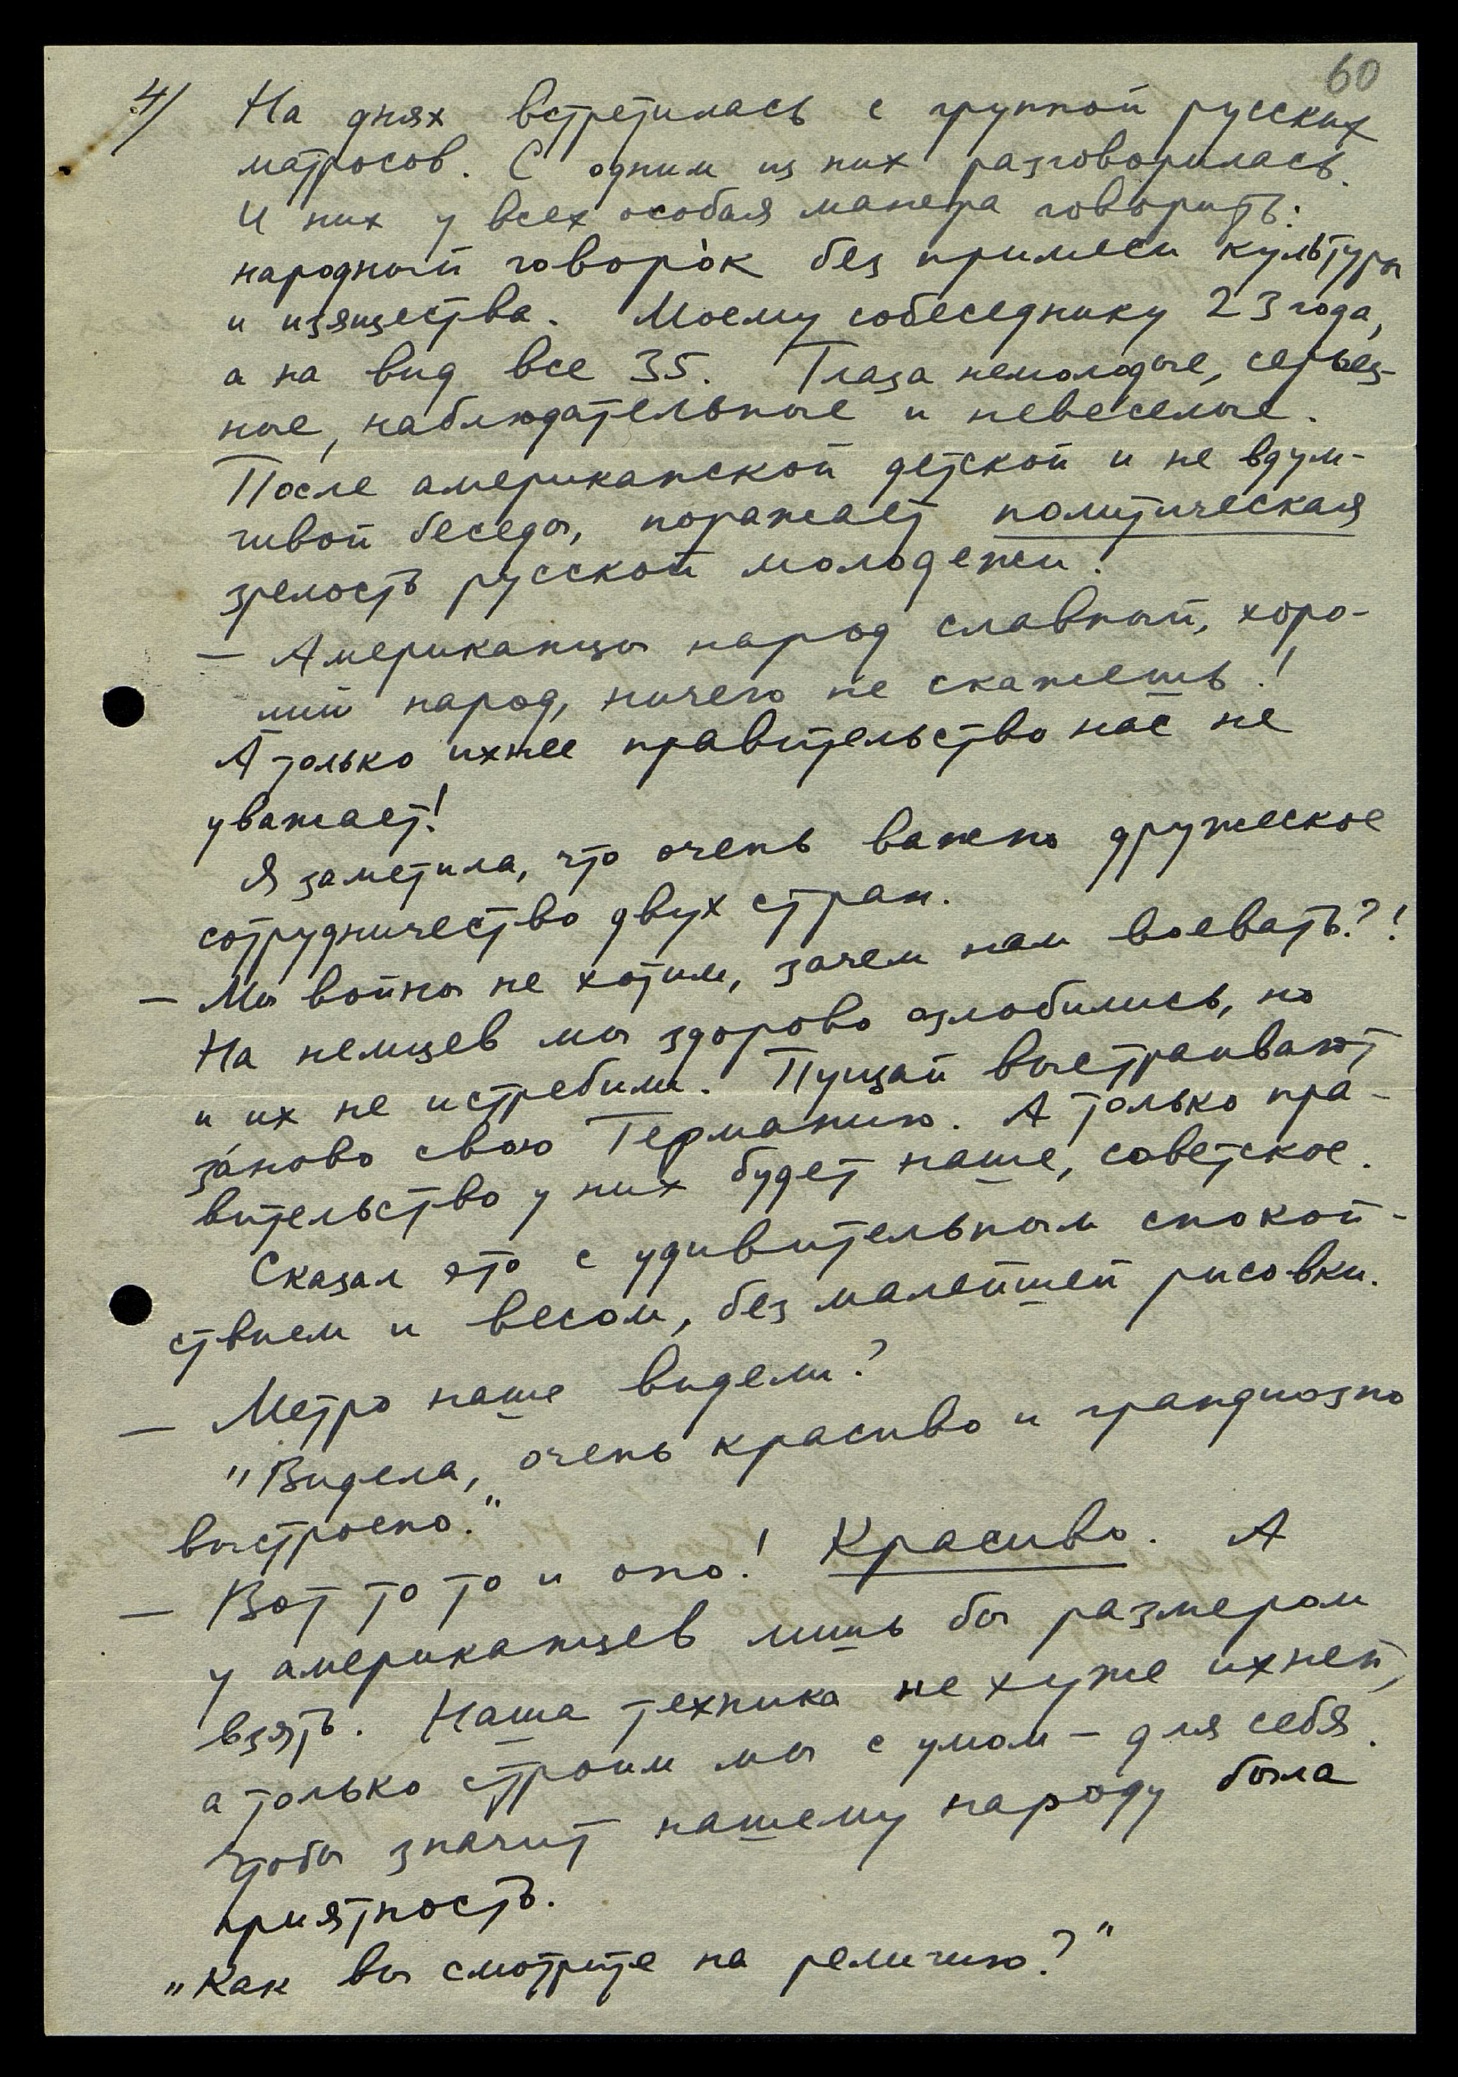 60
4/ На днях встретилась с группой русских
матросов. С одним из них разговорилась.
И них у всех особая манера говорить:
народный говоро́к без примеси культуры
и изящества. Моему собеседнику 23 года,
а на вид все 35. Глаза немолодые, серьез-
ные, наблюдательные и невеселые.
После американской детской и не вдум-
чивой беседы, поражает политическая
зрелость русской молодежи!
— Американцы народ славный, хоро-
ший народ, ничего не скажешь!
А только ихнее правительство нас не
уважает!
Я заметила, что очень важно дружеское
сотрудничество двух стран.
— Мы войны не хотим, зачем нам воевать?!
На немцев мы здорово озлобились, но
и их не истребим. Пущай выстраивают
за́ново свою Германию. А только пра-
вительство у них будет наше, советское.
Сказал это с удивительным спокой-
ствием и весом, без малейшей рисовки.
— Метро наше видели?
"Видела, очень красиво и грандиозно
выстроено."
— Вот то то и оно! Красиво. А
у американцев лишь бы размером
взять. Наша техника не хуже ихней,
а только строим мы с умом — для себя.
Чтобы значит нашему народу была
приятность.
„Как вы смотрите на религию?"